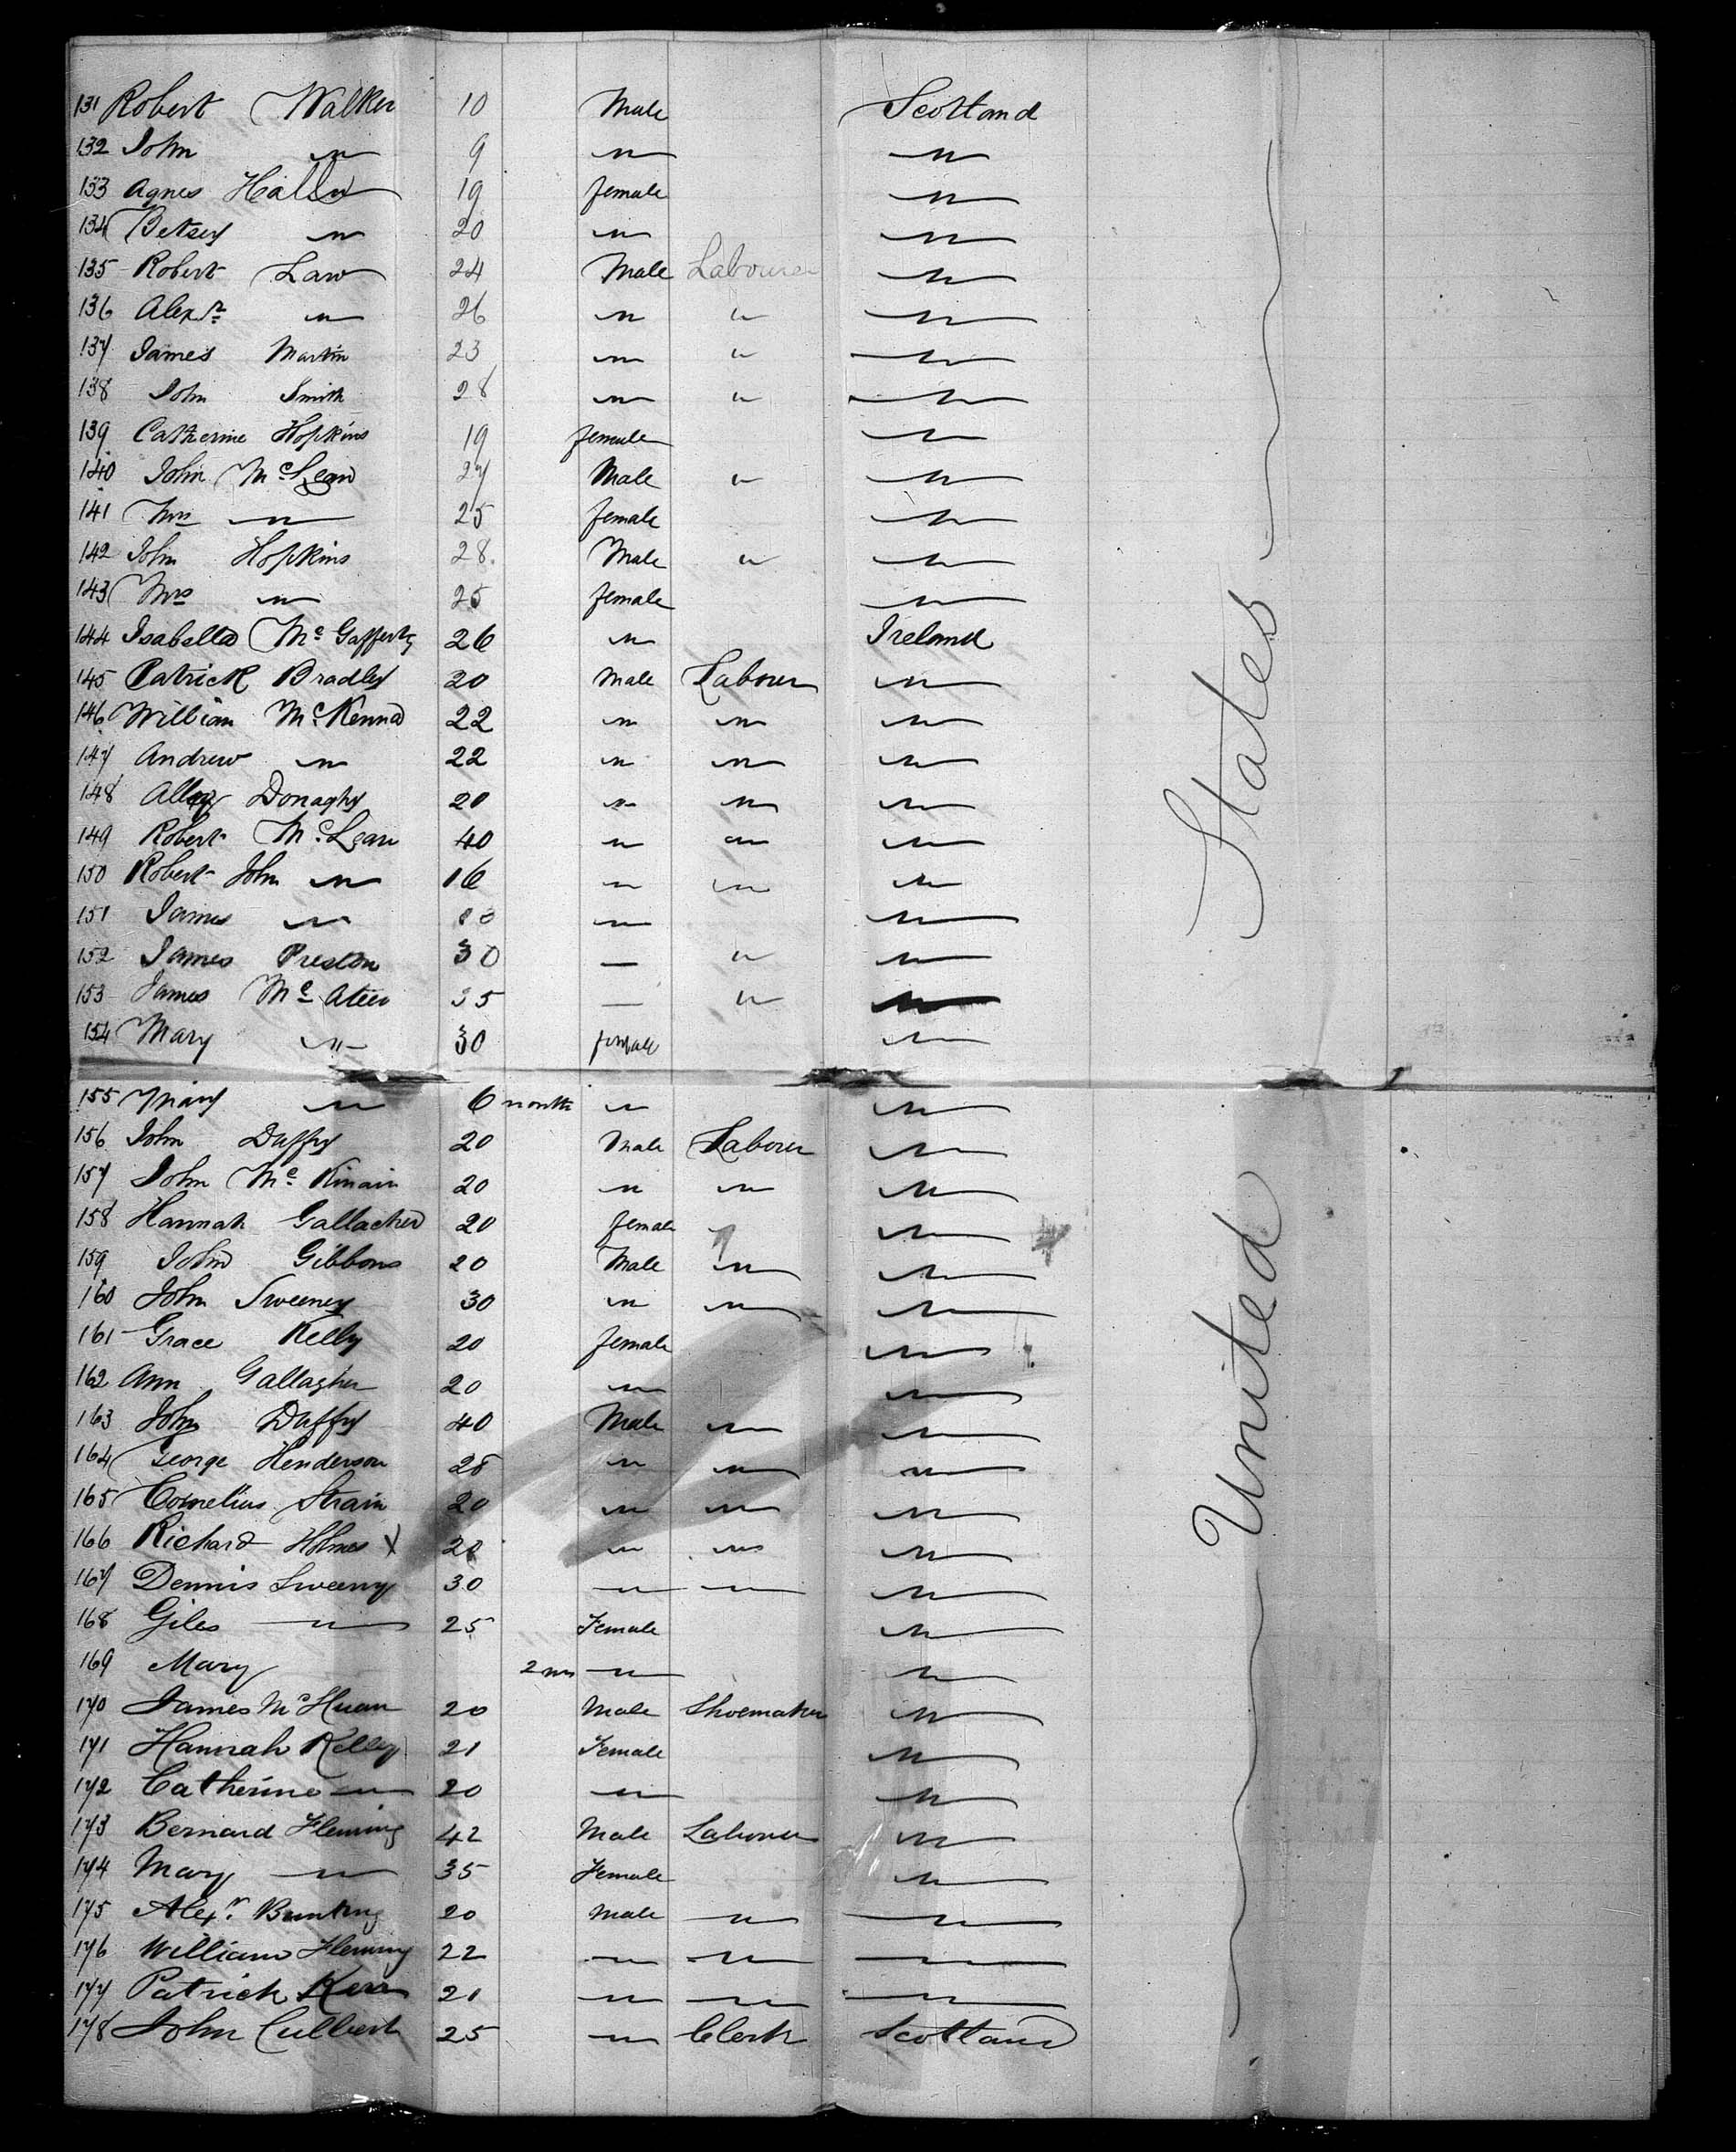 131 Robert Walker 10 Male Scotland
132 John " 9 " "
133 Agnes 19 female "
134 Betsey " 20 " "
135 Robert Law 24 Male Labourer "
136 Alexr " 26 " " "
137 James Martin 23 " " "
138 John Smith 28 " " "
139 Catherine Hopkins 19 female "
140 John McLean 27 Male " "
141 Mrs " 25 female "
142 John Hopkins 28. Male " "
143 Mrs " 25 female "
144 Isabella McGafferty 26 " Ireland
145 Patrick Bradley 20 Male Labourer "
146 William McKenna 22 " " "
147 Andrew " 22 " " "
148 Donaghy 20 " " "
149 Robert McLean 40 " " "
150 Robert John " 16 " " "
151 James " " "
152 James Preston 30 " " "
153 James McAteer 35 " " "
154 Mary " 30 female "
155 Mary " 6 months " "
156 John Duffy 20 Male Labourer "
157 John McKinair 20 " " "
158 Hannah Gallacher 20 female "
159 John Gibbons 20 Male " "
160 John Sweeney 30 " " "
161 Grace Kelly 20 female "
162 Ann Gallagher 20 " "
163 John Duffy 40 Male " "
164 George Henderson 28 " " "
165 Cornelius Strain 20 " " "
166 Richard Holmes X " " "
167 Dennis Sweeny 30 " " "
168 Giles " 25 Female "
169 Mary 2 ms " "
170 James McHuan 20 Male Shoemaker "
171 Hannah Kelley 21 Female "
172 Catherine " 20 " "
173 Bernard Fleming 42 Male Labourer "
174 Mary " 35 Female "
175 Alexr. Bunting 20 Male " "
176 William Fleming 22 " " "
177 Patrick Kerr 21 " " "
178 John Culbert 25 " Clerk Scotland
United States